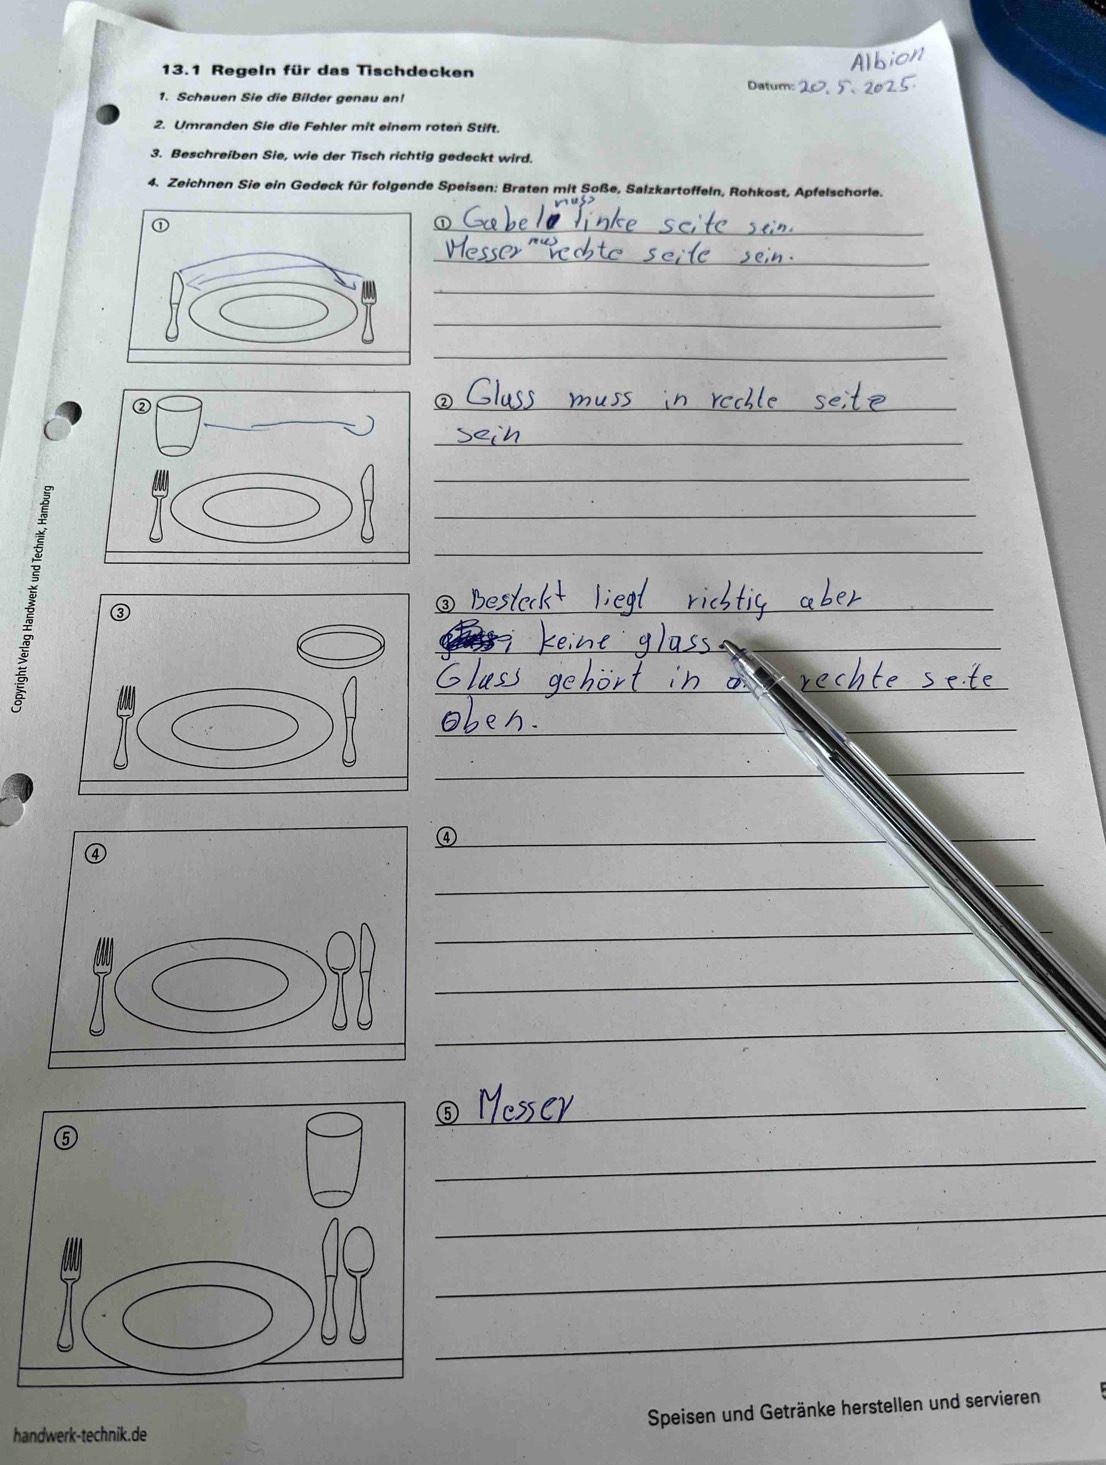 13.1 Regeln für das Tischdecken
Albion
Datum: 20.5.2025.
1. Schauen Sie die Bilder genau an!
2. Umranden Sie die Fehler mit einem roten Stift.
3. Beschreiben Sie, wie der Tisch richtig gedeckt wird.
4. Zeichnen Sie ein Gedeck für folgende Speisen: Braten mit Soße, Salzkartoffeln, Rohkost, Apfelschorle.
①
① Gabel muss linke seite sein.
Messer mus rechte seite sein.
②
② Glass muss in rechte seite
sein
③
③ Besteckt liegt richtig aber
keine glass.
Glass gehört in rechte seite
oben.
④
④
⑤
⑤ Messer
Copyright Verlag Handwerk und Technik, Hamburg
Speisen und Getränke herstellen und servieren
handwerk-technik.de